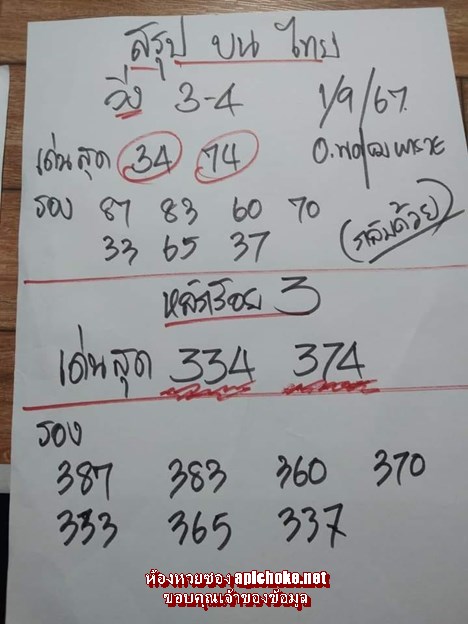 สรุป บน ไทย
วิ่ง 3-4 1/9/67.
เด่นสุด 34 74
รอง 87 83 60 70
33 65 37 (กลับด้วย)
หลักร้อย 3
เด่นสุด 334 374
รอง
387 383 360 370
333 365 337
ห้องหวยซอง apichoke.net
ขอบคุณเจ้าของข้อมูล